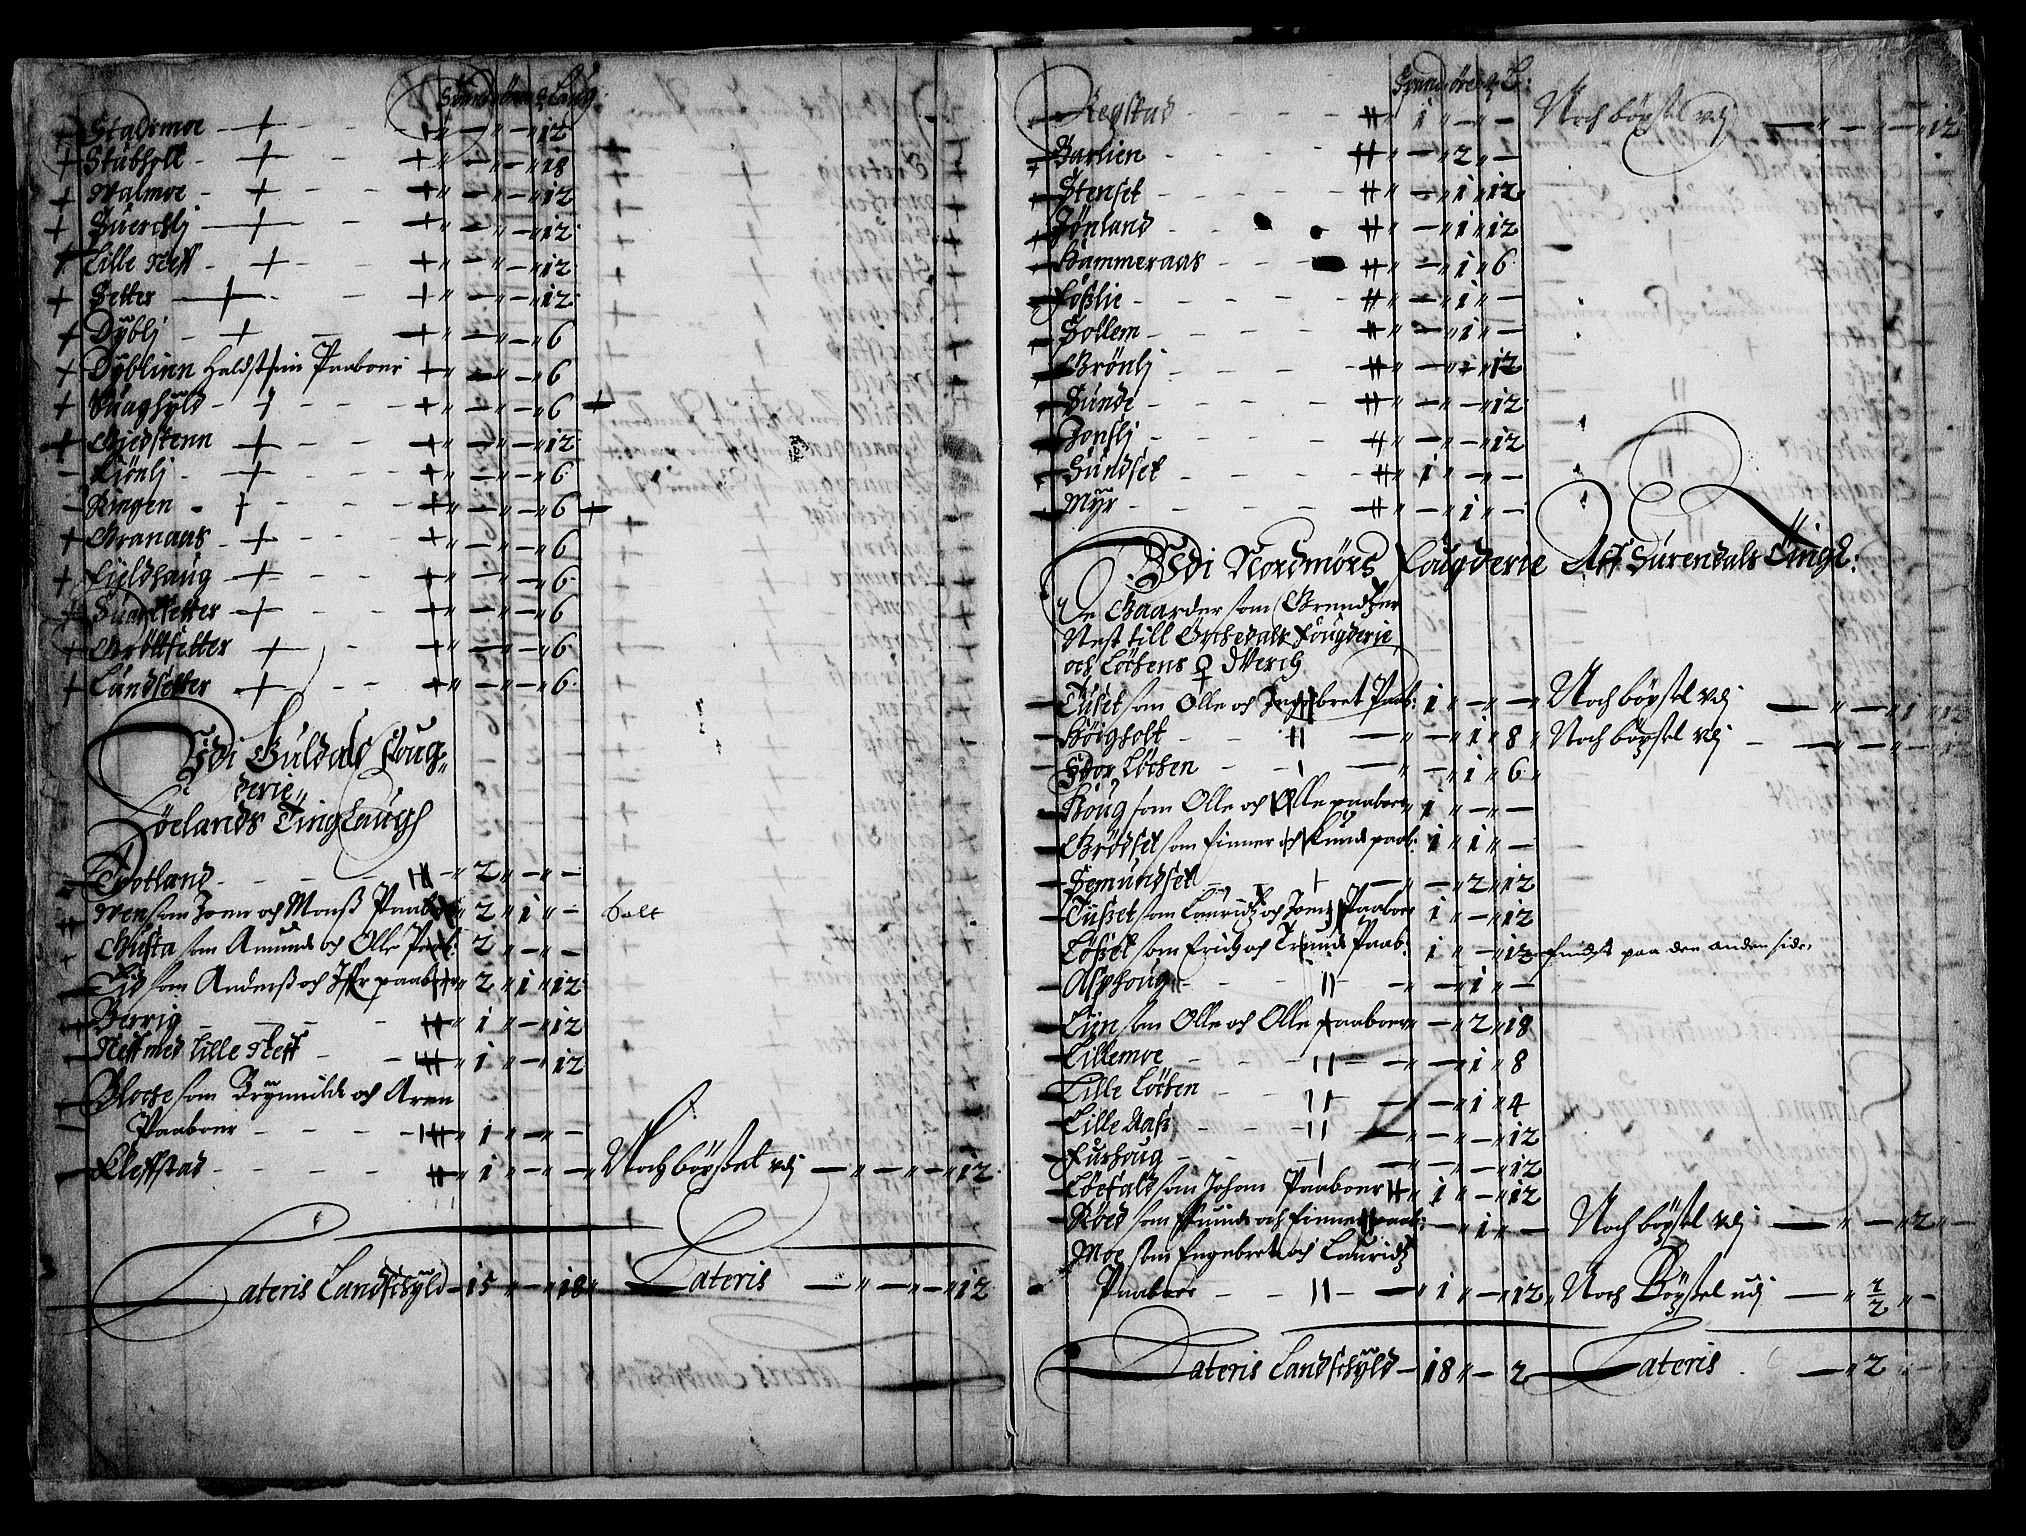 Spand öre & Laug:
Stadsmoe - - - " - " - " 12
Stubholl - - - " - " - " 18
Walmoe - - - " - " - " 12
Suerchlj - - - " - " - " 12
Lille Neff - - - " - " - " 12
Setter - - - " - " - " 12
Dÿblj - - - " - " - " 6
Dÿblinn Haldsteen Paaboer " - " - " 6
Suaghÿld - - - " - " - " 6
Giedstenn - - - " - " - " 12
Liönlj - - - " - " - " 6
Ringen - - - " - " - " 6
Granaas - - - " - " - " 6
Fieldhaug - - - " - " - " 6
Suartsetter - - - " - " - " 6
Gröttsetter - - - " - " - " 6
Lundsetter - - - " - " - " 6
Udi Guldals Foug-
derie
Höelands Tinglaugh
Trotland - - - 2 " - " -
Wen som Joen och Monß Paaboer 2 " 1 " - balt
Gusta som Amund och Olle Paab: 2 " - " -
Lid som Anderß och Ifr paaboer 2 " 1 " 12
Borrig - - - 1 " - " 12
Neff med Lille Neff - - - 1 " - " 12
Floche som Brÿnnild och Aren
Paaboer - - - 1 " - " -
Kleffstad - - - 1 " - " - Noch böxsel vdj - " - " - " 12
Lateris Landschÿld - 15 " - " 18 " Lateris - " - " - " 12
Spand öre & L:
Regstad - - - 1 " - " - Noch böxsel vdj - " - " - " 12
Barlien - - - " - " 2 " -
Stenset - - - " - " 1 " 12
Jönland - - - " - " 1 " 12
Hammeraas - - - " - " 1 " 6
Foßlie - - - " - " 1 " -
Sollem - - - " - " 1 " -
Grönlj - - - " - " - " 12
Sunde - - - " - " - " 12
Jonslj - - - " - " - " 12
Sundset - - - 1 " - " -
Mÿr - - - " - " 1 " -
Udi Nordmörs Fougderie Aff Surendals Tingl:
De Gaarder som Grendtzer
Nest till Orchedals Fougderie
och Löchens ♀ Werch
Tuset som Olle och Ingebret Paab: 1 " - " - Noch böxsel vdj - " - " 1 " 12
Höigholt - - - " - " 1 " 8 Noch böxsel vdj - " - " - " 12
Stor Löchen - - - " - " 1 " 6
Houg som Olle och Olle paaboer 1 " - " -
Grödset som Finner och Knud paab: 1 " 1 " -
Semundset - - - " - 2 " 12
Tusset som Lauridtz och Joen Paaboer 1 " - " 12
Lößet som Erich och Trund Paab: 1 " - " 12 findes paa den anden side.
Asphoug - - - " - " 1 " -
Lien som Olle och Olle paaboer " - " 2 " 18
Lillemoe - - - " - " 1 " 8
Lille Löchen - - - " - " 1 " 4
Lille Aaß - - - " - " - " 12
Furhoug - - - " - " - " 12
Löefald som Johan Paaboer 1 " - " 12
Röed som Knud och Finner paab: - " 1 " - Noch böxsel vdj - " - " 2 " -
Moe som Engebret och Lauridtz
Paaboer - - - " 1 " - " 12 " Noch Böxsel udj - " 1/2 " -
Lateris Landschÿld - 18 " - 2 - Lateris - " 2